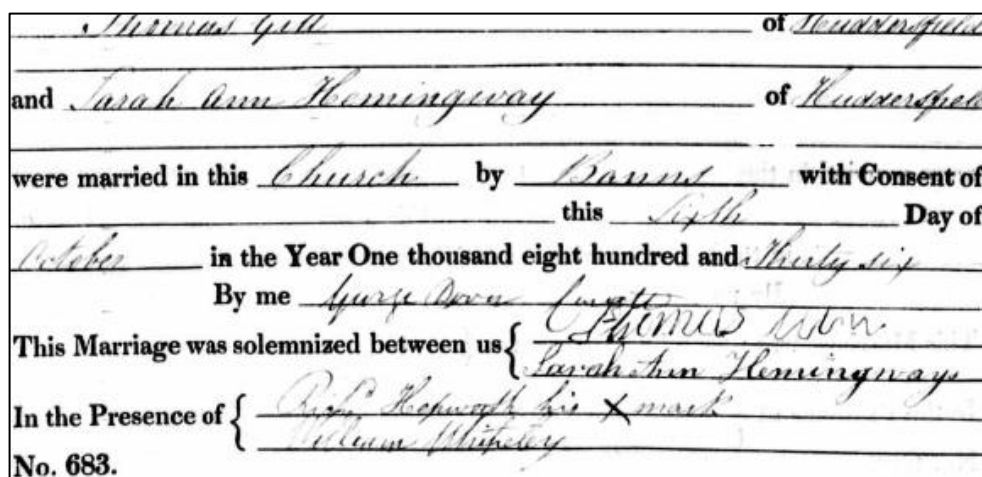 Thomas Gill of Huddersfield
and Sarah Ann Hemingway of Huddersfield
were married in this Church by Banns with Consent of
this Sixth Day of
October in the Year One thousand eight hundred and Thirty six
By me George Curate
This Marriage was solemnized between us { Thomas
Sarah Ann Hemingways
In the Presence of { Richd Hepworth his X mark
William Whiteley
No. 683.